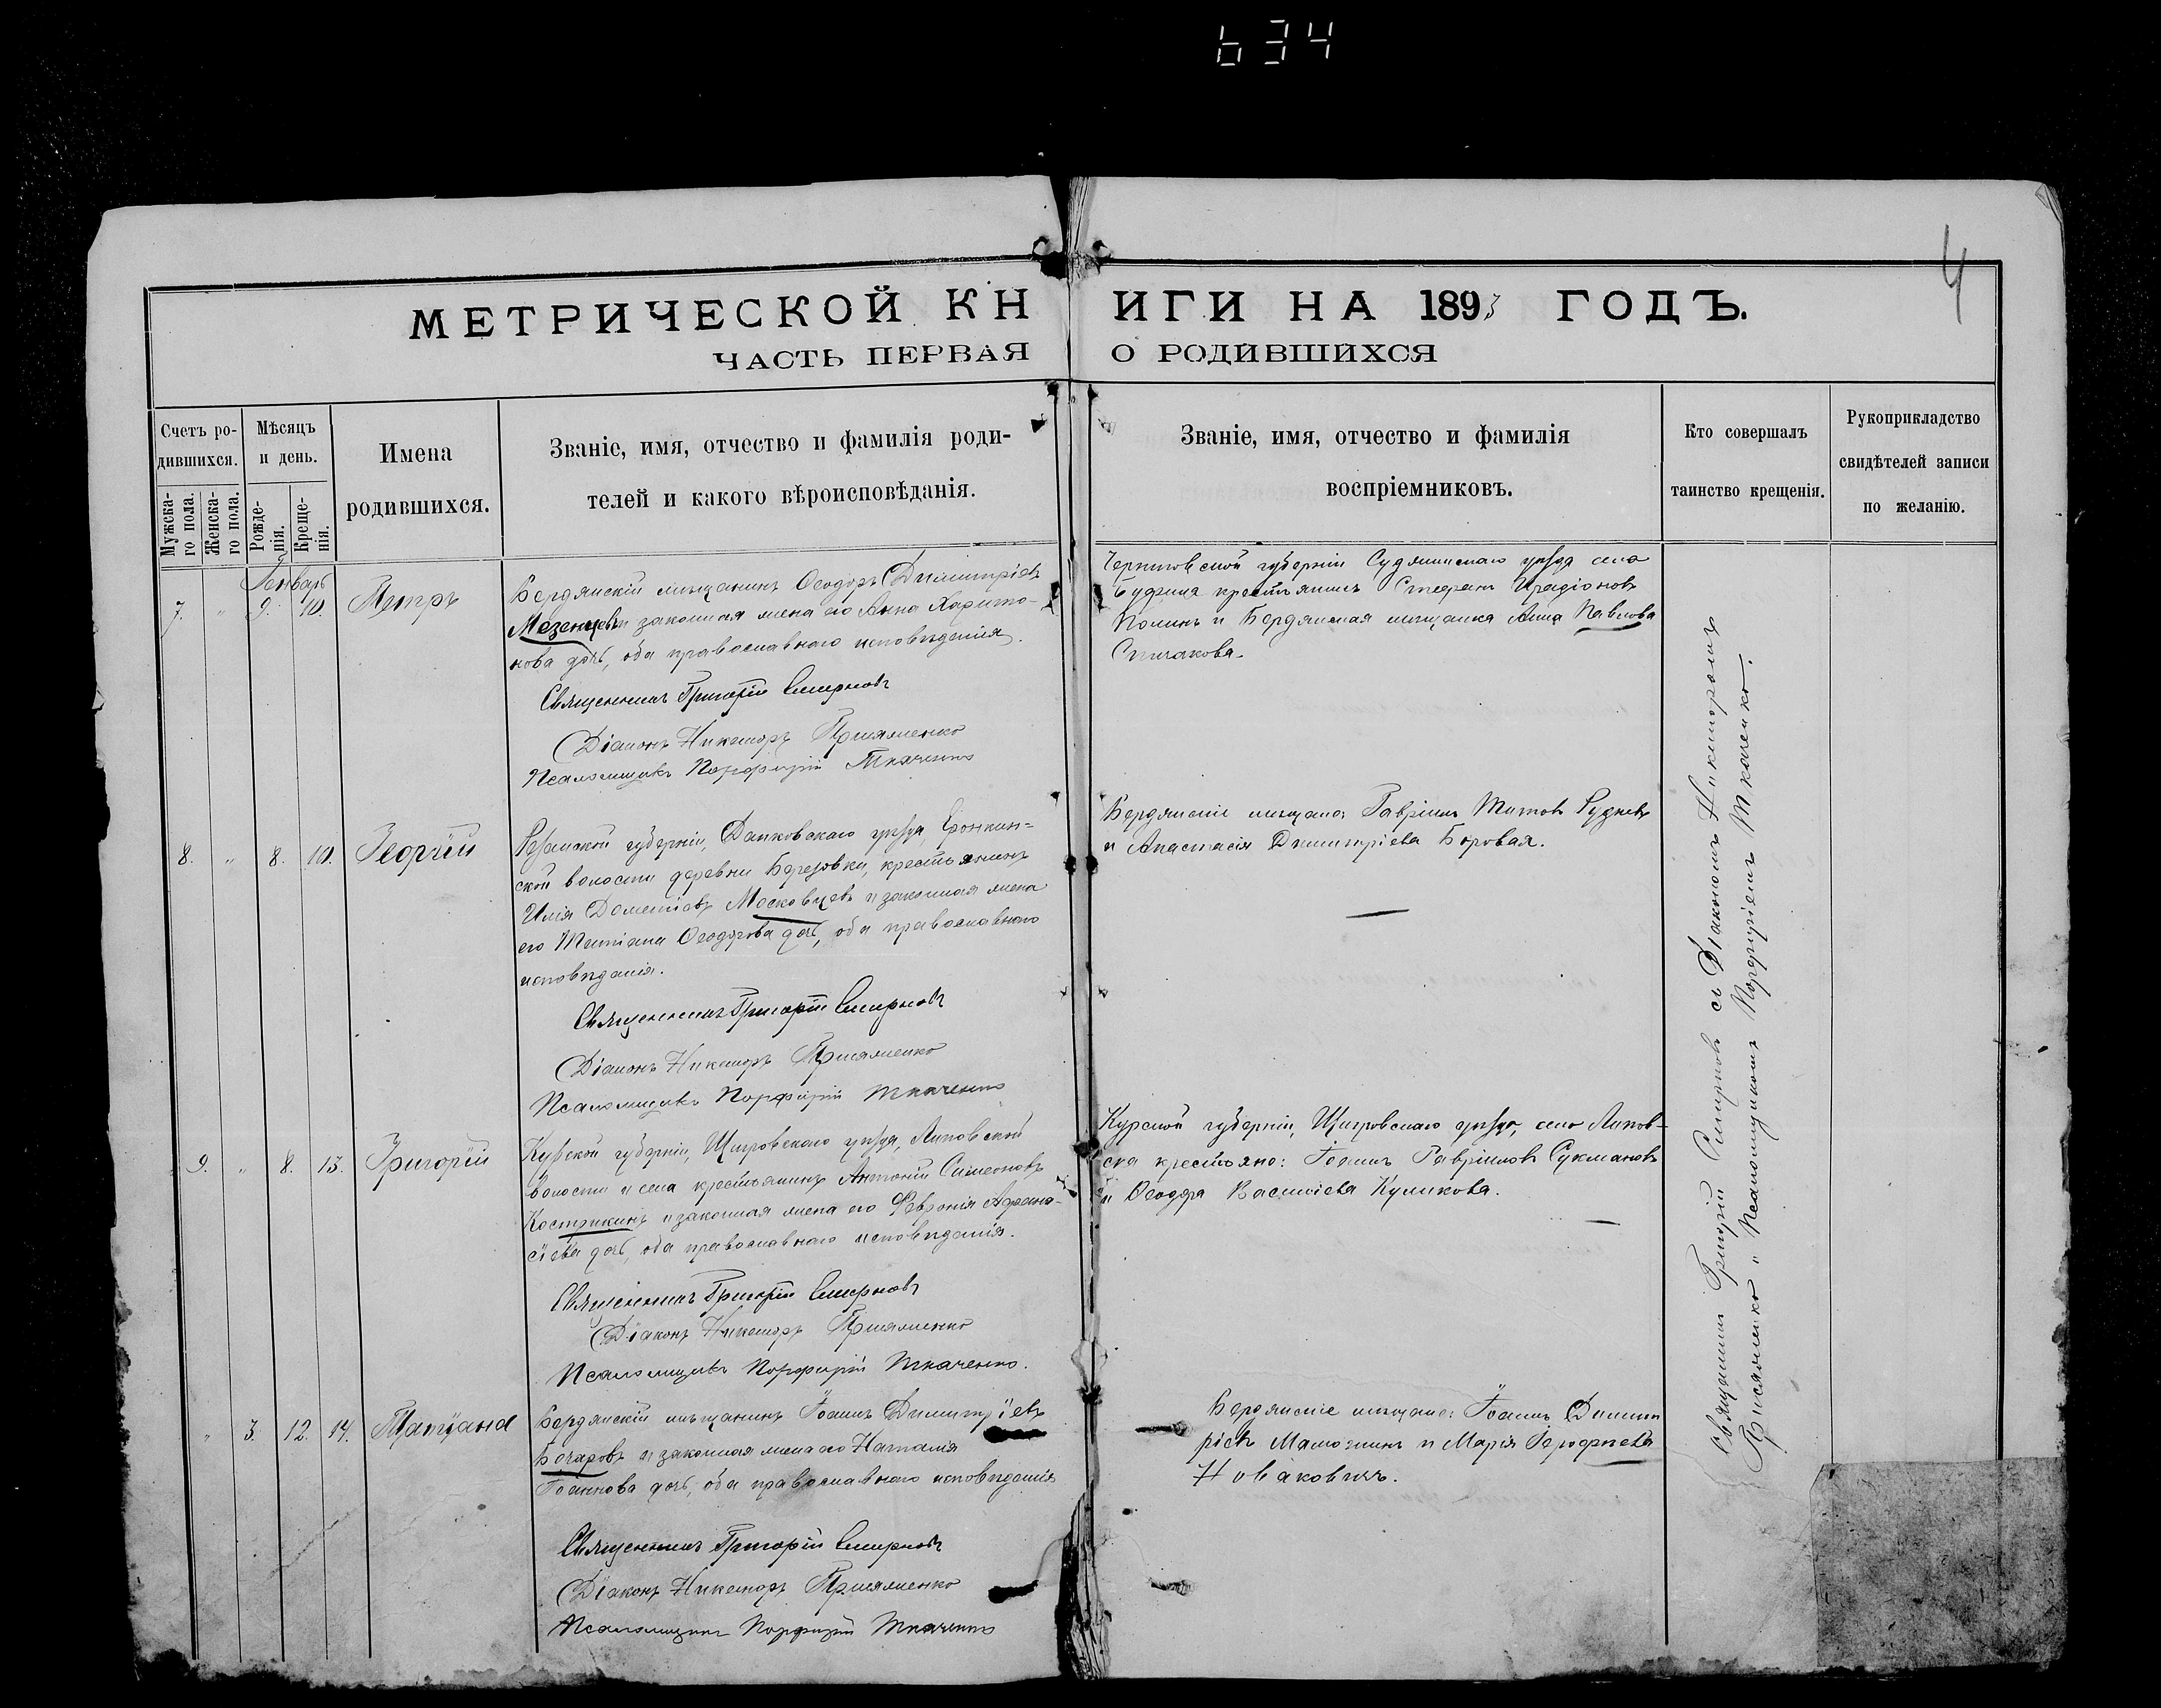 634
4
МЕТРИЧЕСКОЙ КНИГИ НА 1893 ГОДЪ.
ЧАСТЬ ПЕРВАЯ О РОДИВШИХСЯ
Счетъ ро-
дившихся.
Мужска-
го пола.
Женска-
го пола.
Мѣсяцъ
и день.
Рожде-
нія.
Креще-
нія.
Имена
родившихся.
Званіе, имя, отчество и фамилія роди-
телей и какого вѣроисповѣданія.
Званіе, имя, отчество и фамилія
воспріемниковъ.
Кто совершалъ
таинство крещенія.
Рукоприкладство
свидѣтелей записи
по желанію.
Генварь
7. " 9. 10. Петръ
Бердянскій мѣщанинъ Ѳеодоръ Димитріевъ
Мезенцевъ и законная жена его Анна Харито-
нова дочь, оба православнаго исповѣданія.
Священникъ Григорій Смирновъ
Діаконъ Никаноръ
Псаломщикъ Порфирій Ткаченко
Черниговской губерніи уѣзда села
крестьянинъ Стефанъ Иродіоновъ
и Бердянская мѣщанка Анна Павлова
8. " 8. 10. Георгій
Рязанской губерніи, Данковскаго уѣзда,
ской волости деревни Березовки, крестьянинъ
Илія Дометіевъ Московцевъ и законная жена
его Татіана Ѳеодорова дочь, оба православнаго
исповѣданія.
Священникъ Григорій Смирновъ
Діаконъ Никаноръ
Псаломщикъ Порфирій Ткаченко
Бердянскіе мѣщане: Гавріилъ Титовъ Рудневъ
и Анастасія Димитріева Боровая.
9. " 8. 13. Григорій
Курской губерніи, Щигровскаго уѣзда, Липовской
волости и села крестьянинъ Антоній Симеоновъ
Кострикинъ и законная жена его Февронія Афана-
сіева дочь, оба православнаго исповѣданія.
Священникъ Григорій Смирновъ
Діаконъ Никаноръ
Псаломщикъ Порфирій Ткаченко.
Курской губерніи, Щигровскаго уѣзда, села Липов-
ска крестьяне: Іоаннъ Гавріиловъ Сукмановъ
и Ѳеодора Васильева Куликова.
" 3. 12. 14. Татіана
Бердянскій мѣщанинъ Іоаннъ Димитріевъ
Бочаровъ и законная жена его Наталія
Іоаннова дочь, оба православнаго исповѣданія
Священникъ Григорій Смирновъ
Діаконъ Никаноръ
Псаломщикъ Порфирій Ткаченко
Бердянскіе мѣщане: Іоаннъ Димит
ріевъ и Марія Іерофеева
Новаковичъ.
Священникъ Григорій Смирновъ съ Діакономъ Никаноромъ
и Псаломщикомъ Порфиріемъ Ткаченко.